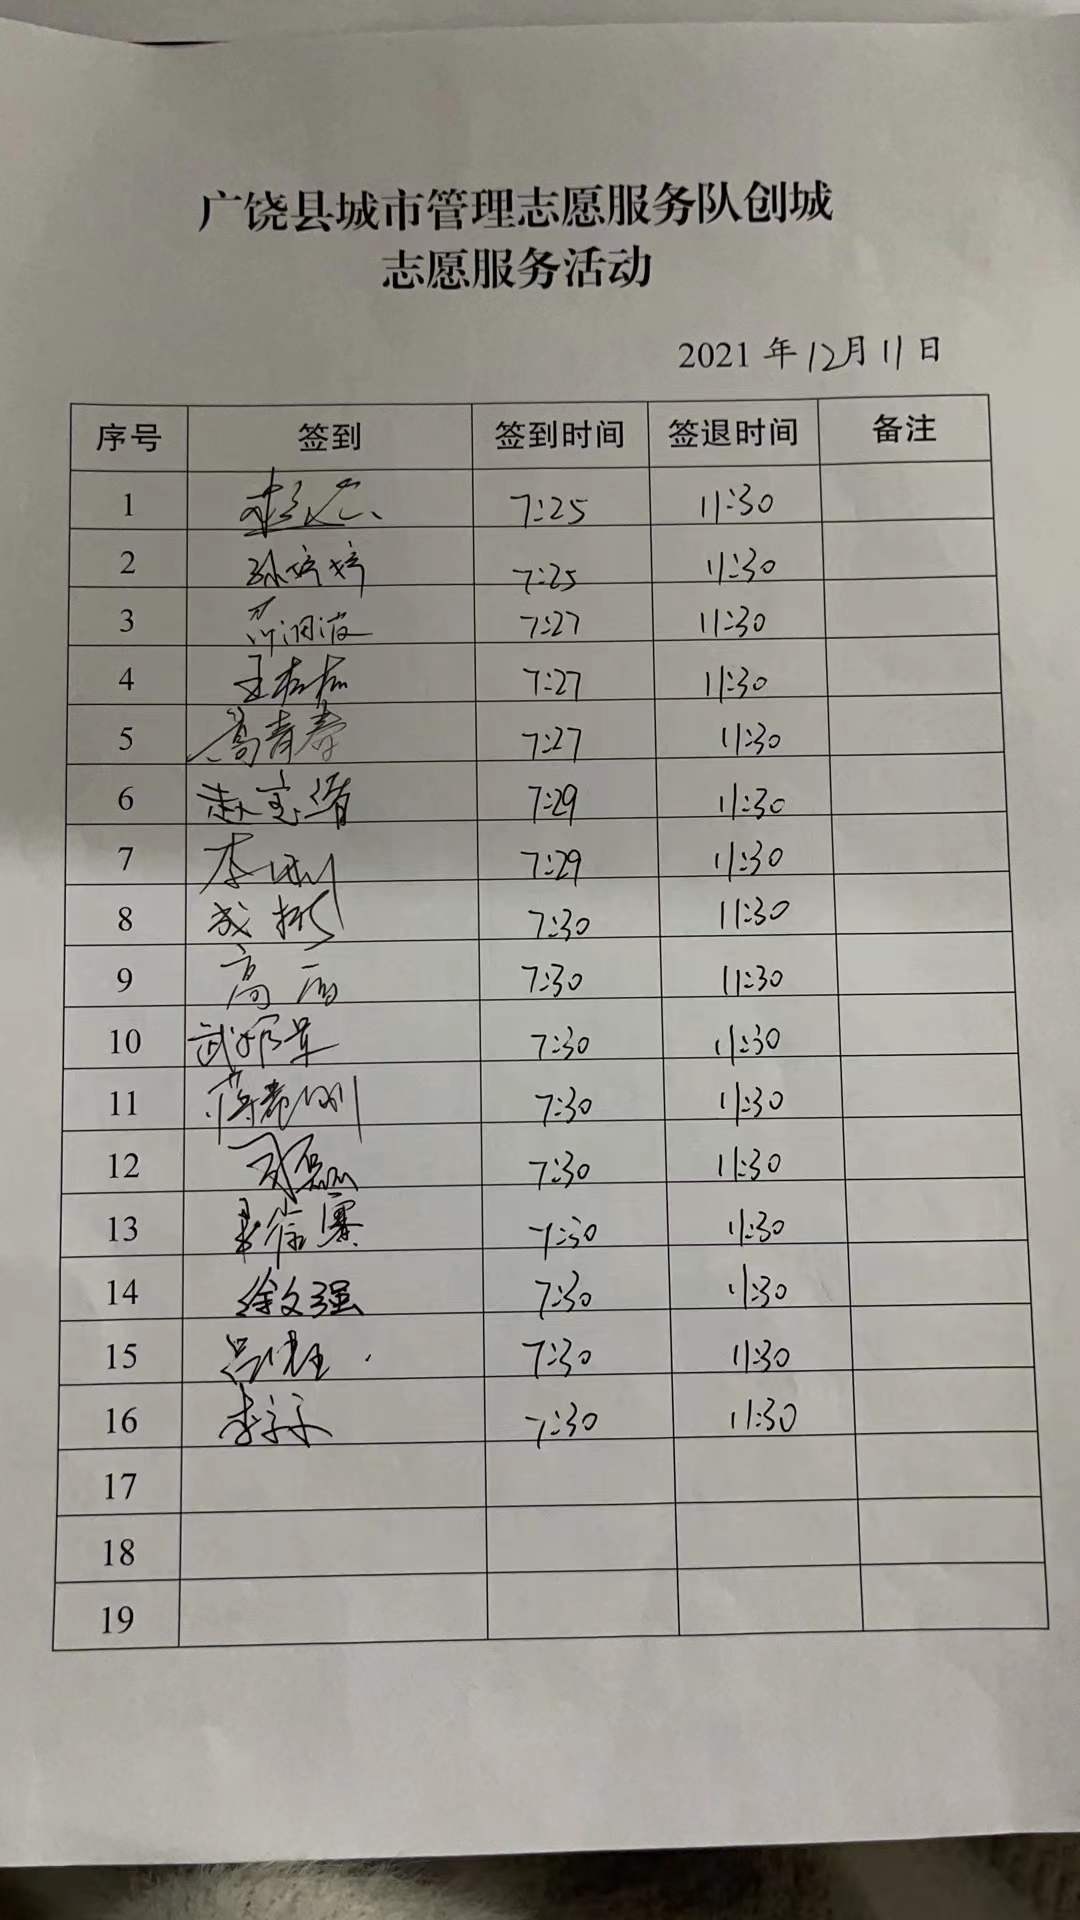 广饶县城市管理志愿服务队创城
志愿服务活动
2021 年 12月 11日
序号 签到 签到时间 签退时间 备注
1 7:25 11:30
2 孙婷婷 7:25 11:30
3 7:27 11:30
4 王 7:27 11:30
5 高青春 7:27 11:30
6 赵 7:29 11:30
7 李 7:29 11:30
8 成 7:30 11:30
9 高 7:30 11:30
10 武 7:30 11:30
11 蒋 7:30 11:30
12 7:30 11:30
13 7:30 11:30
14 徐文强 7:30 11:30
15 吕 7:30 11:30
16 李 7:30 11:30
17
18
19